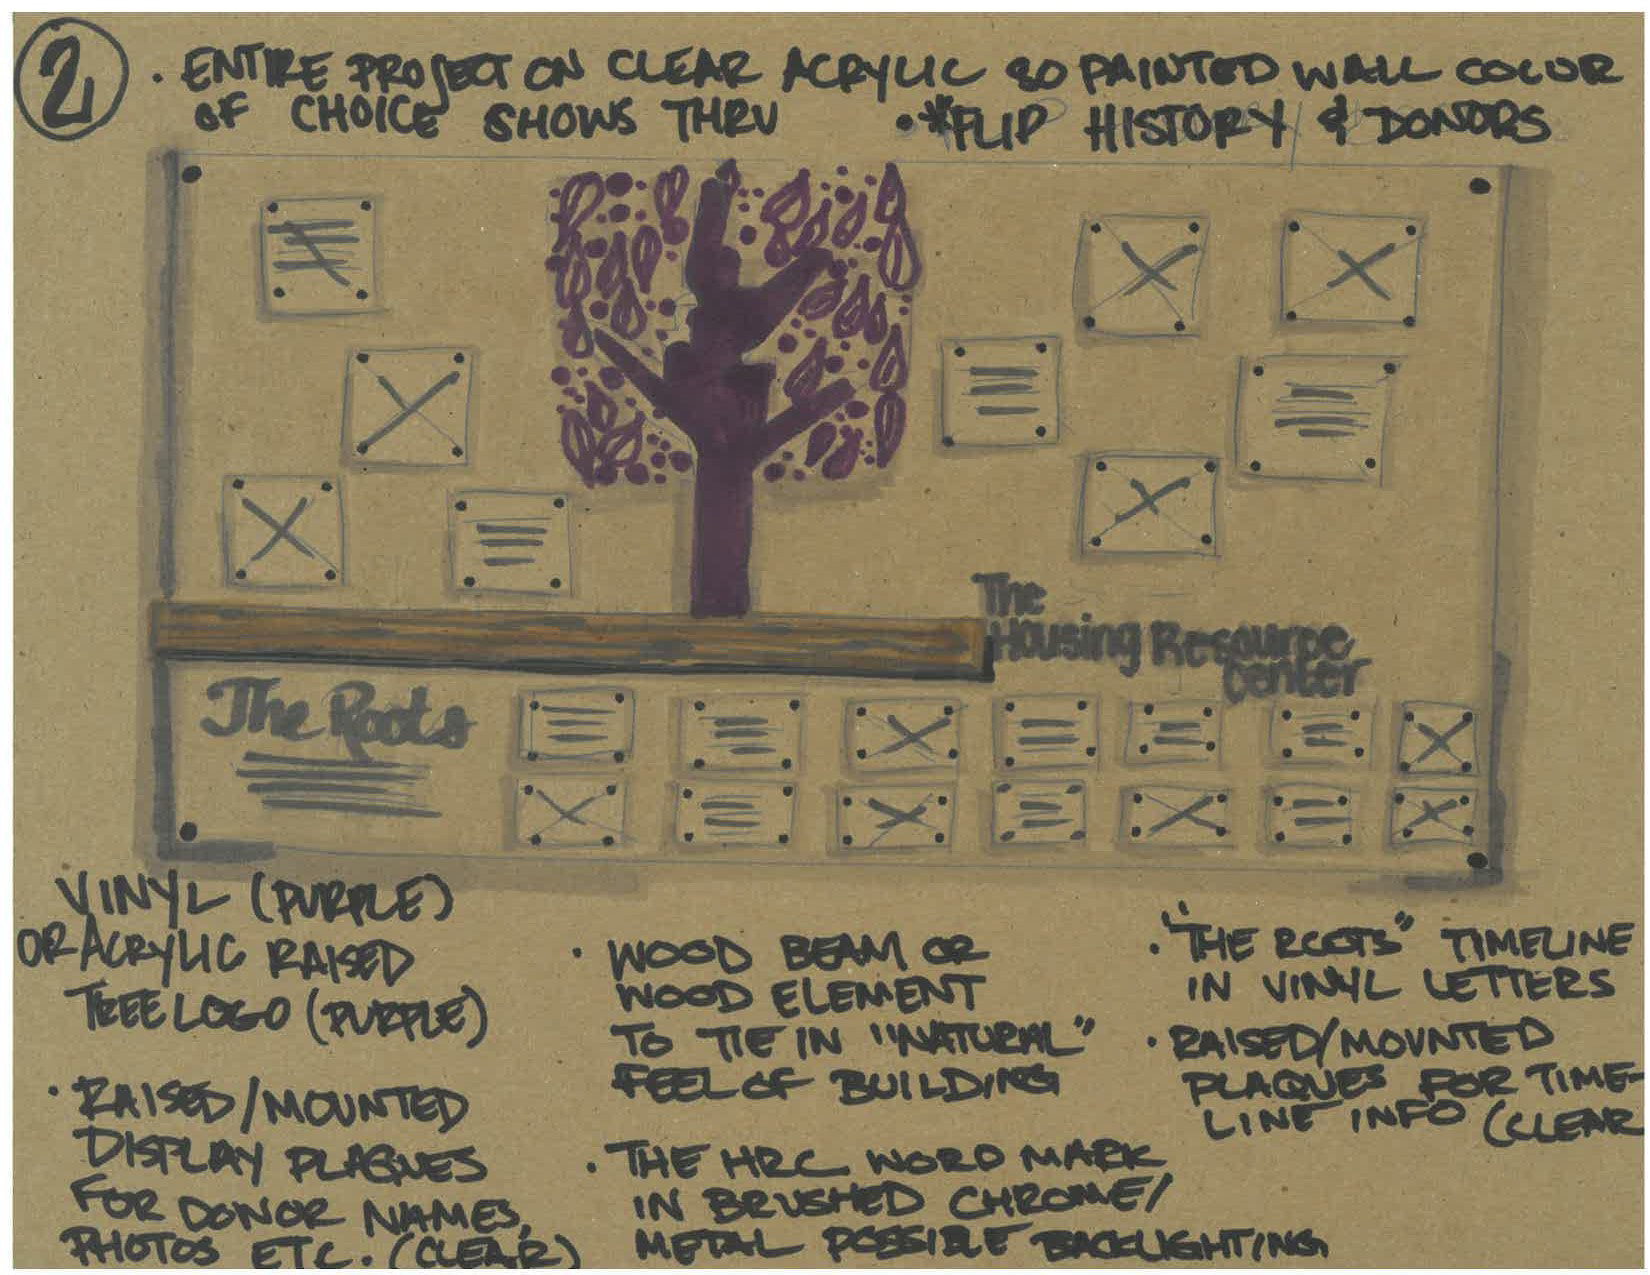 2
• ENTIRE PROJECT ON CLEAR ACRYLIC SO PAINTED WALL COLOR
OF CHOICE SHOWS THRU • *FLIP HISTORY & DONORS
The
Housing Resource
Center
The Roots
VINYL (PURPLE)
OR ACRYLIC RAISED
TREE LOGO (PURPLE)
• RAISED/MOUNTED
DISPLAY PLAQUES
FOR DONOR NAMES,
PHOTOS ETC. (CLEAR)
• WOOD BEAM OR
WOOD ELEMENT
TO TIE IN "NATURAL"
FEEL OF BUILDING
• THE HRC WORD MARK
IN BRUSHED CHROME/
METAL POSSIBLE BACKLIGHTING
• "THE ROOTS" TIMELINE
IN VINYL LETTERS
• RAISED/MOUNTED
PLAQUES FOR TIME-
LINE INFO (CLEAR